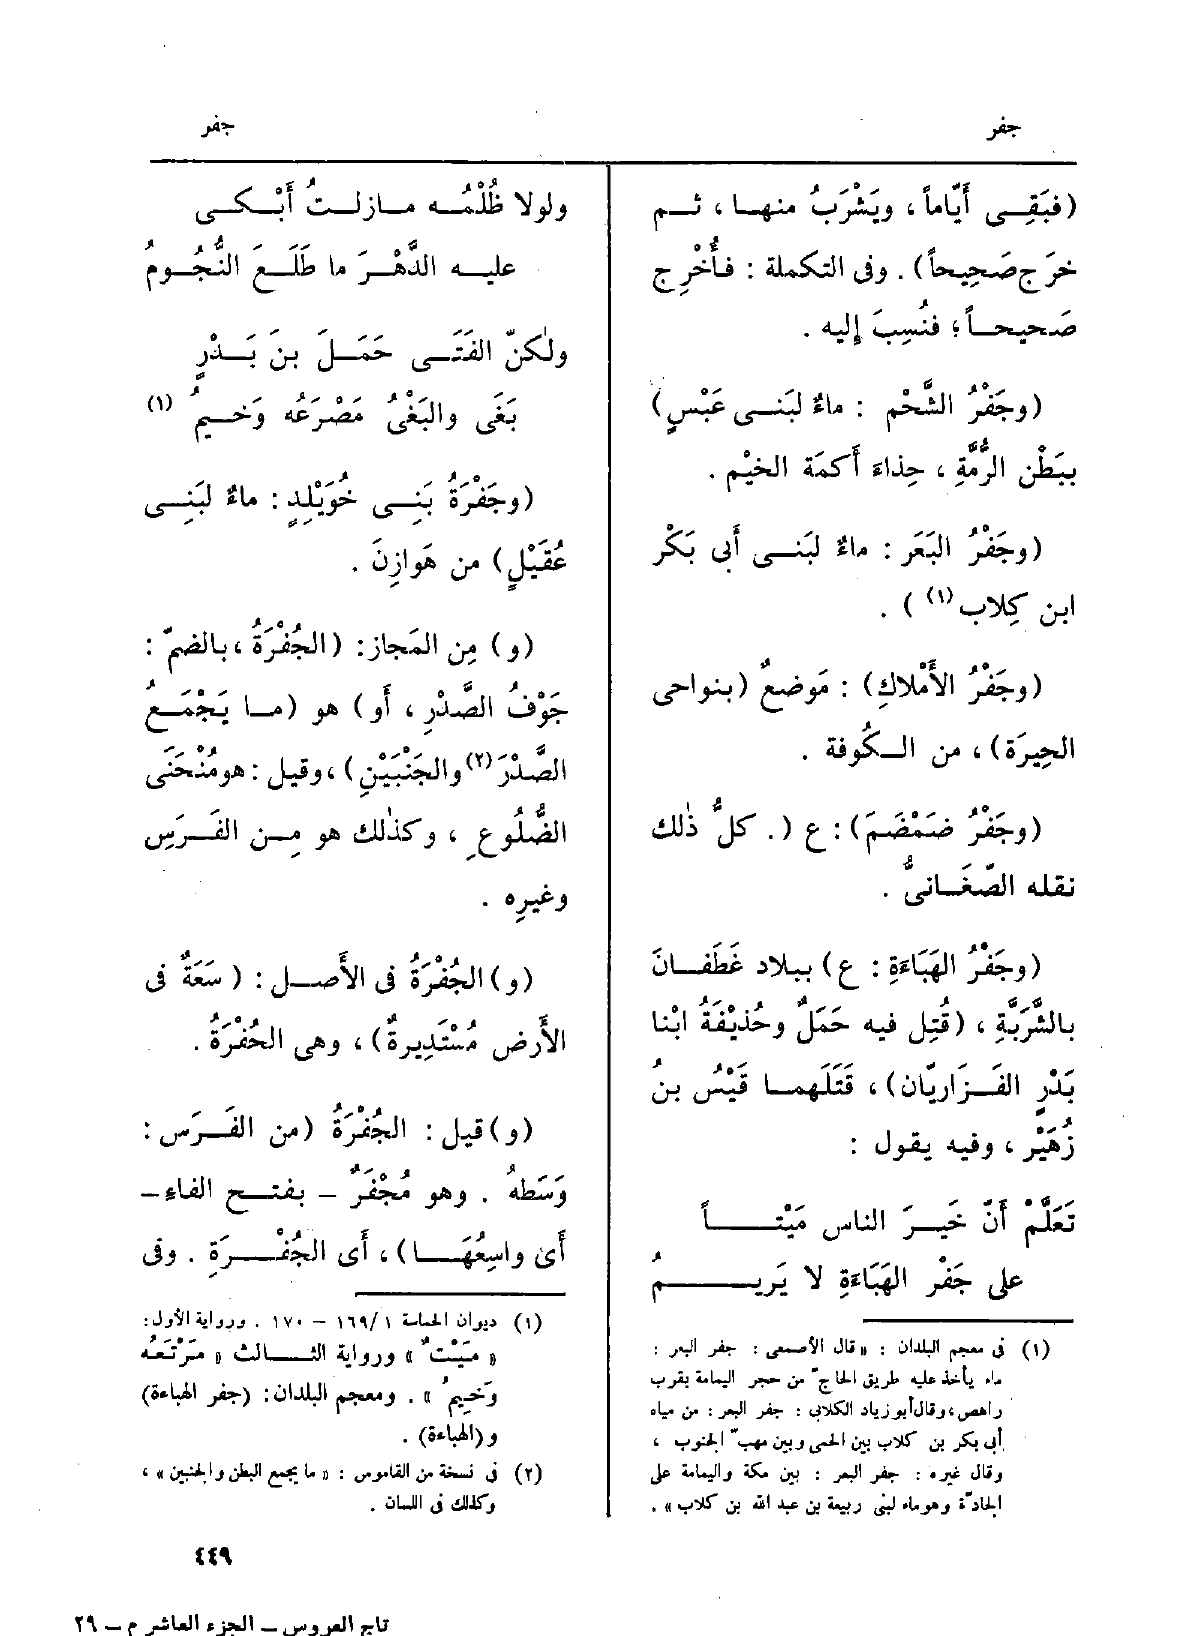 جفر
جفر
(فبَقِى أَيّاماً، ويَشْرَبُ منها، ثم
خرَج صَحِيحاً). وفى التكملة : فأُخْرِج
صَحيحاً؛ فنُسِبَ إليه .
(وجَفْرُ الشَّحْم : ماءٌ لبَنى عَبْسٍ)
ببَطْن الرُّمَّةِ ، حِذاءَ أَكَمَة الخيْم .
(وجَفْرُ البَعَر : ماءٌ لبَنى أَبى بَكْر
ابن كِلاب (١) ) .
(وجَفْرُ الأَمْلاكِ) : مَوضعٌ (بنواحى
الحِيرَة) ، من الكُوفة .
(وجَفْرُ ضَمْضَمَ) : ع (. كلُّ ذٰلك
نقله الصّغَانىُّ .
(وجَفْرُ الهَبَاءَةِ : ع) ببلاد غَطَفانَ
بالشَّرَبَّةِ ، (قُتِل فيه حَمَلٌ وحُذَيْفَةُ ابْنا
بَدْرٍ الفَزاريّان) ، قَتَلَهما قَيْسُ بنُ
زُهَيْر ، وفيه يقول :
تَعَلَّمْ أَنّ خَيرَ الناس مَيْتاً
على جَفْر الهَبَاءَةِ لا يَريمُ
(١) فى معجم البلدان : « قال الأصمعى : جفر البعر :
ماء يأخذ عليه طريق الحاجّ من حجر اليمامة بقرب
راهص، وقال أبو زياد الكلابى : جفر البعر : من مياه
أبى بكر بن كلاب بين الحمى وبين مهبّ الجنوب ،
وقال غيره : جفر البعر : بين مكة واليمامة على
الجادّة وهو ماء لبنى ربيعة بن عبد الله بن كلاب » .
ولولا ظُلْمُه مازلتُ أَبْكى
عليه الدَّهْرَ ما طَلَعَ النُّجُومُ
ولٰكنّ الفَتَى حَمَلَ بنَ بَدْرٍ
بَغَى والبَغْىُ مَصْرَعُه وَخيمُ (١)
(وجَفْرَةُ بَنِى خُوَيْلِدٍ : ماءٌ لبَنِى
عُقَيْلٍ) من هَوازِنَ .
(و) مِن المَجاز: (الجُفْرَةُ ، بالضمّ :
جَوْفُ الصَّدْرِ ، أَو) هو (ما يَجْمَعُ
الصَّدْرَ (٢) والجَنْبَيْنِ) ، وقيل : هو مُنْحَنَى
الضُّلُوعِ ، وكذٰلك هو مِن الفَرَسِ
وغيرِه .
(و) الجُفْرَةُ فى الأَصل : ( سَعَةٌ فى
الأَرض مُسْتَدِيرةٌ) ، وهى الحُفْرَةُ .
(و) قيل : الجُفْرَةُ (من الفَرَس :
وَسَطهُ . وهو مُجْفَرٌ - بفتح الفاء -
أَىْ واسِعُهَا) ، أَى الجُفْرَةِ . وفى
(١) ديوان الحماسة ١٦٩/١ - ١٧٠ . ورواية الأول:
« مَيْتٌ » ورواية الثالث « مَرْتَعُه
وَخيمُ » . ومعجم البلدان: (جفر الهباءة)
و (الهباءة) .
(٢) فى نسخة من القاموس : « ما يجمع البطن والجنبين » ،
وكذلك فى اللسان .
٤٤٩
تاج العروس - الجزء العاشر م - ٢٩